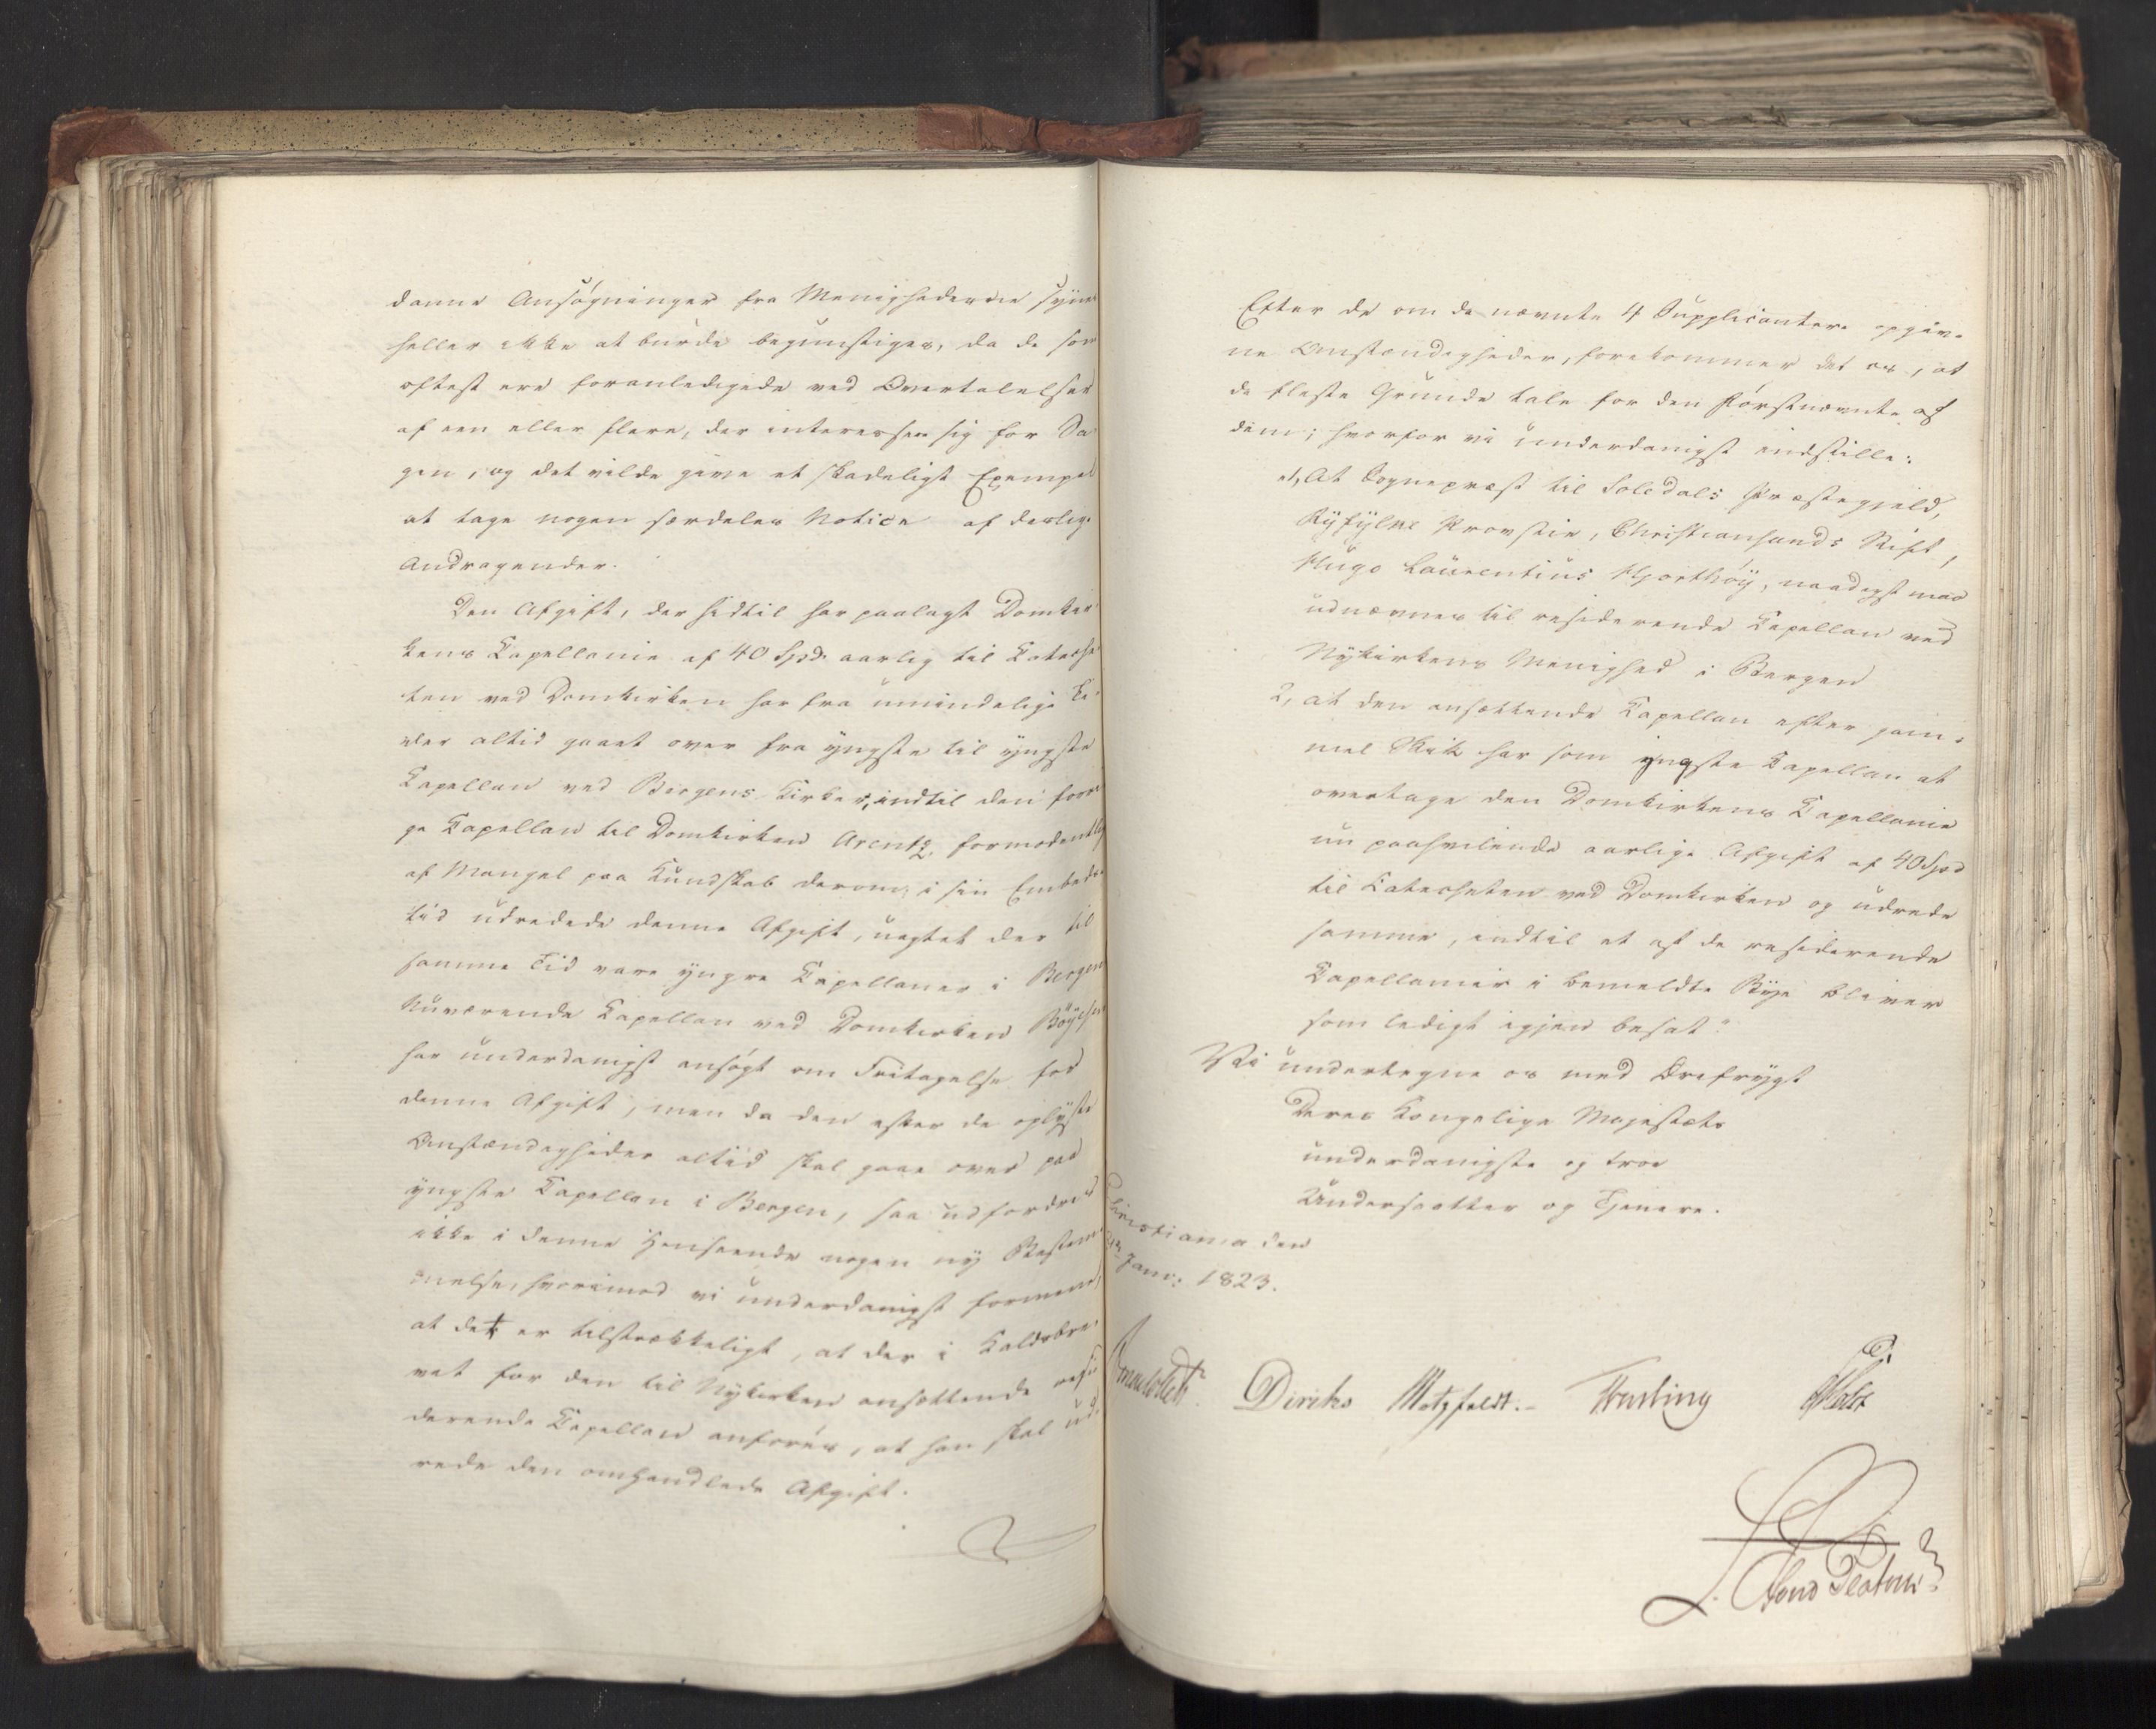 danne Ansøgninger fra Menighederne synes
heller ikke at burde begunstiges, da de som
oftest ere foranledigede ved Overtalelser
af een eller flere, der interessere sig for Sa
gen, og det vilde give et skadeligt Exempel
at tage nogen særdeles Notice af deslige
Andragender.
Den Afgift, der hidtil har paalagt Domkir
kens Capellanie af 40 Spd. aarlig til Cateche
ten ved Domkirken har fra umindelige Ti
der altid gaaet over fra yngste til yngste
Capellan ved Bergens Kirker, indtil den forri
ge Capellan til Domkirken Arentz, formodentlig
af Mangel paa Kundskab derom, i sin Embeds
tid udredede denne Afgift, uagtet der til
samme Tid vare yngre Capellaner i Bergen
Nuværende Capellan ved Domkirken Böyesen
har underdanigst ansøgt om Fritagelse for
denne Afgift, men da den efter de oplyste
Omstændigheder altid skal gaae over paa
yngste Capellan i Bergen, saa udfordres
ikke i denne Henseende nogen ny Bestem
melse, hvorimod vi underdanigst formene,
at det er tilstrækkeligt, at der i Kaldsbre
vet for den til Nykirken ansættende resi
derende Capellan anføres, at han skal ud
rede den omhandlede Afgift.
Efter de om de nævnte 4 Supplicantere opgiv-
ne Omstændigheder, forekommer det os, at
de fleste Grunde tale for den Førstnævnte af
dem; hvorfor vi underdanigst indstille:
1, At Sognepræst til Soledals Præstegjeld,
Ryfylke Provstie, Christiansands Stift,
Hugo Laurentius Hjorthøy, naadigst maa
udnævnes til residerende Capellan ved
Nykirkens Menighed i Bergen
2, at den ansættende Capellan efter gam-
mel Skik har som yngste Capellan at
overtage den Domkirkens Capellanie
nu paahvilende aarlige Afgift af 40 Spd
til Catecheten ved Domkirken og udrede
samme, indtil et af de residerende
Capellanier i bemeldte Bye bliver
som ledigt igjen besat"
Vi undertegne os med Ærefrygt
Deres Kongelige Majestæts
underdanigste og troe
Undersaatter og Tjenere.
Christiania den
Janr: 1823.
Sommerhielm Diriks Motzfeldt. Treschow